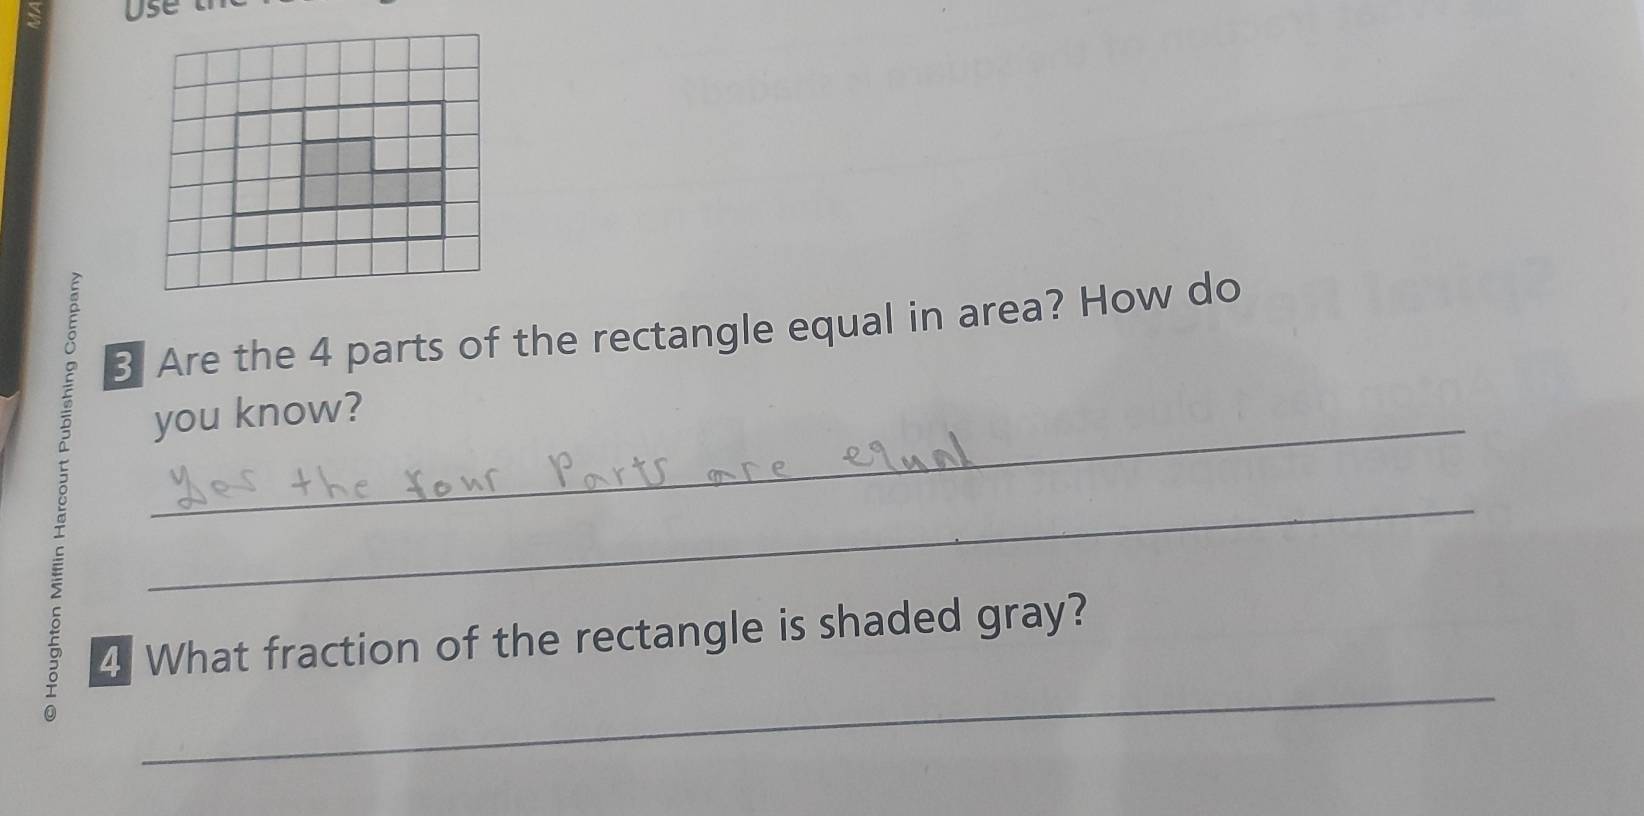 Use
MA
3 Are the 4 parts of the rectangle equal in area? How do
you know?
yes the four Parts are equal
4 What fraction of the rectangle is shaded gray?
© Houghton Mifflin Harcourt Publishing Company